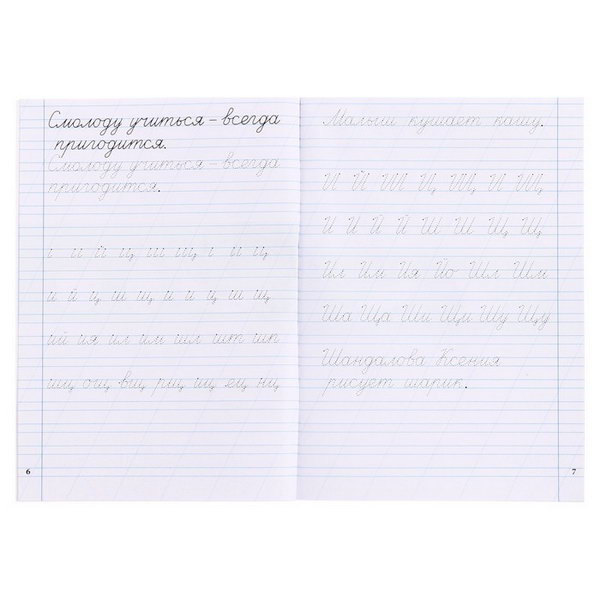 Смолоду учиться – всегда
пригодится.
Смолоду учиться – всегда
пригодится.
и й ц ш щ и й ц ш щ
ий ия ил им шл шт шп
шц ощ вщ рщ щ ец нц
6
Малыш кушает кашу.
И И Й Й Ш Ш Щ Щ
Ил Им Ия Йо Шл Шм
Ша Ща Ши Щи Шу Щу
Шандалова Ксения
рисует шарик.
7